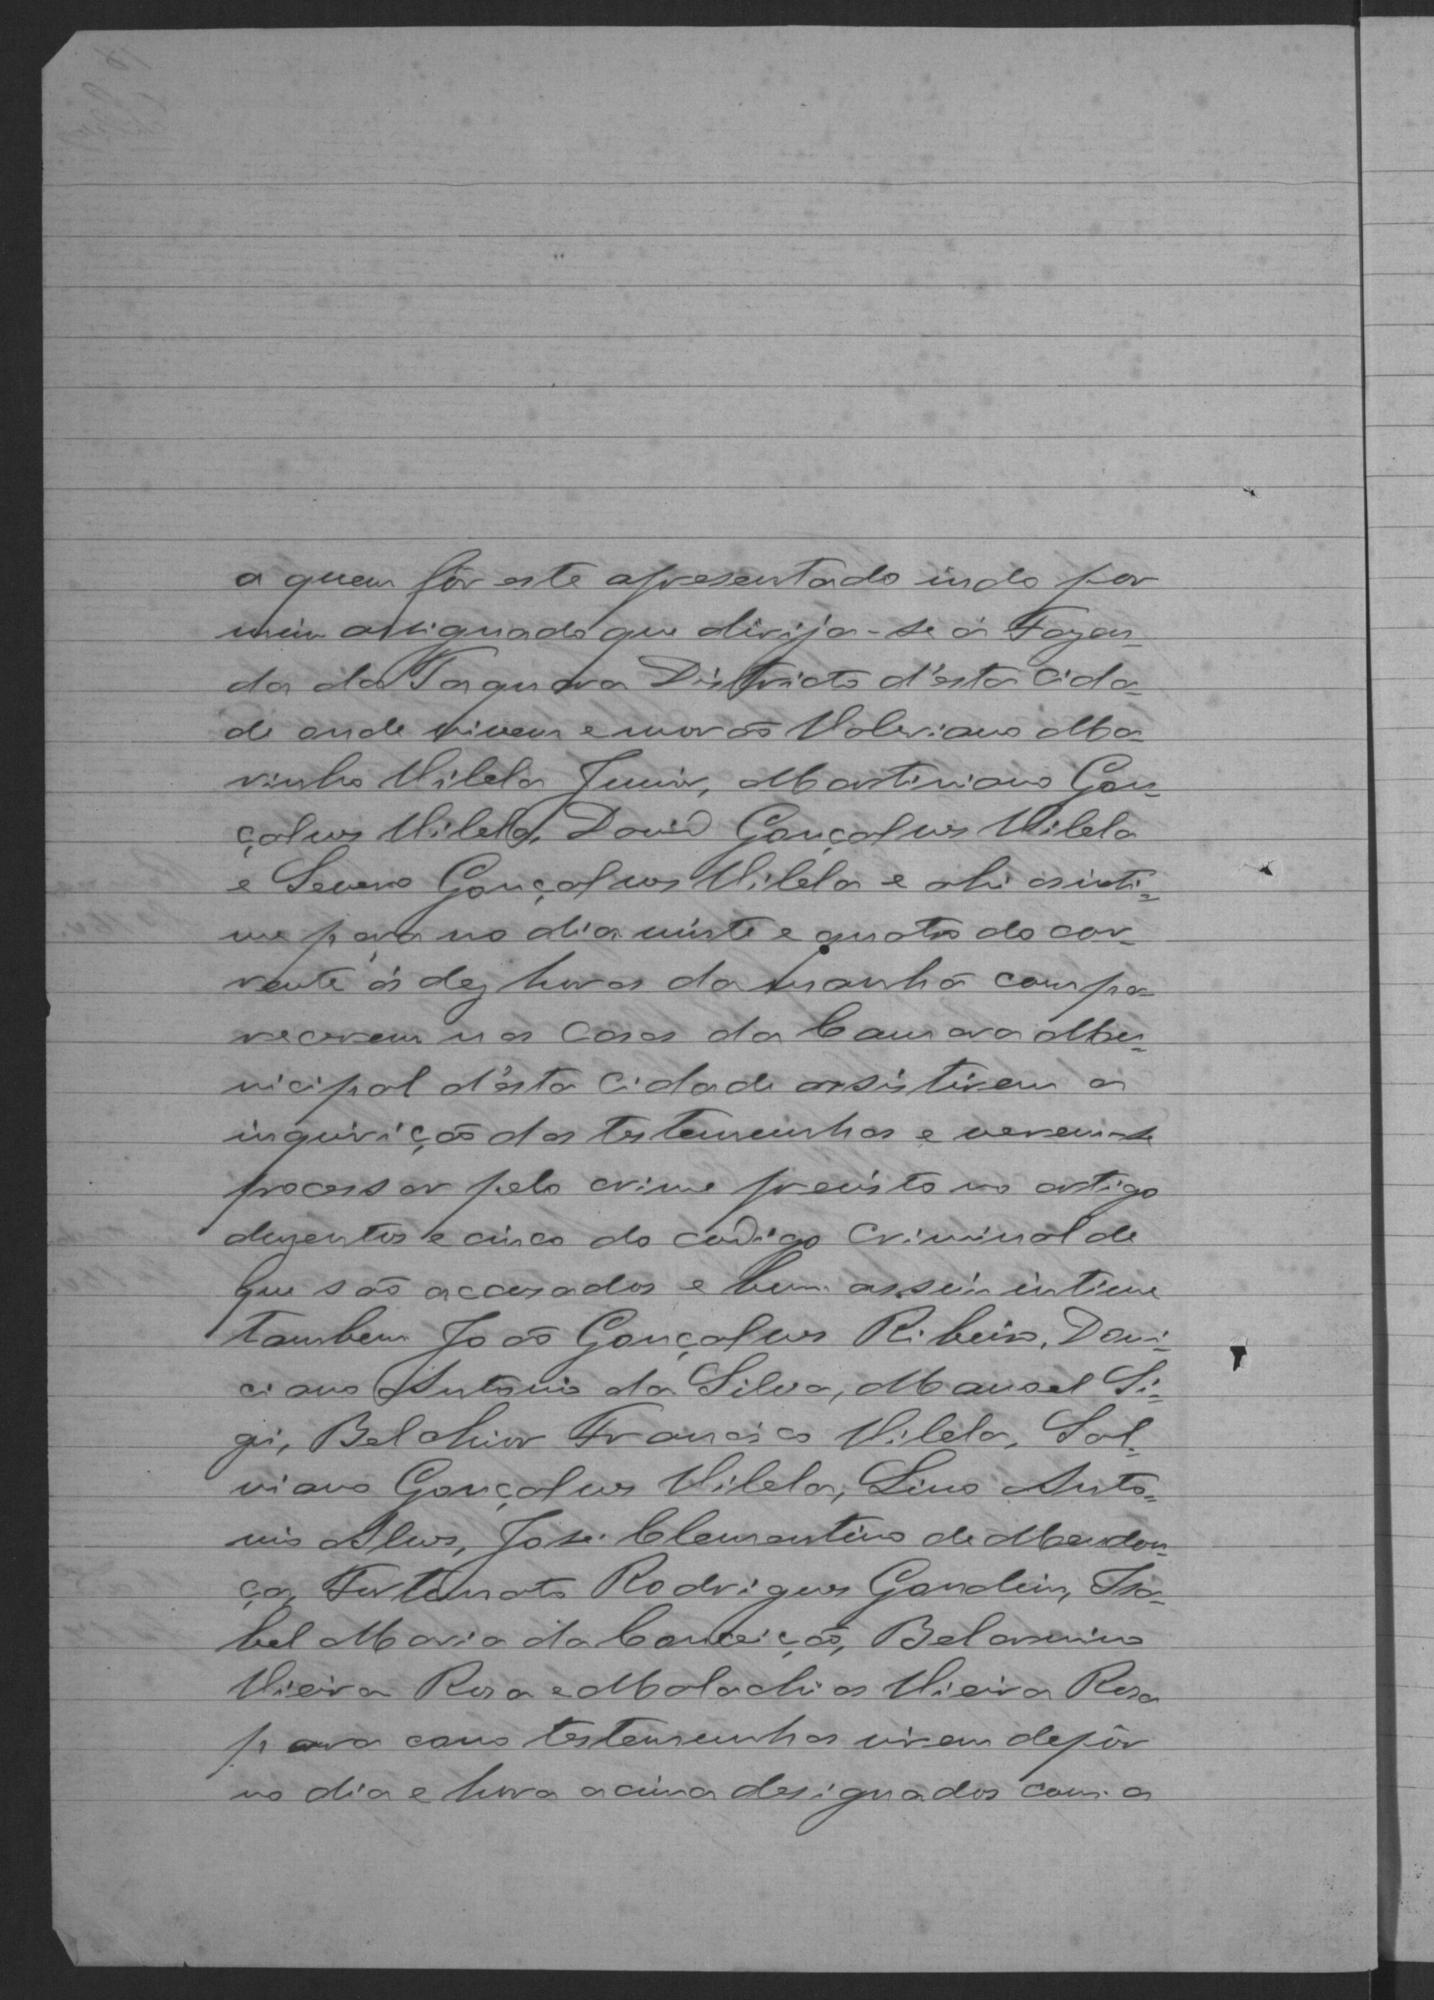 a quem fôr este apresentado indo por
mim assignado que dirija-se á Fazen-
da da Taquara Districto d'esta cida-
de onde vivem e morão Valeriano Ma-
rinho Vilela Junior, Martiniano Gon-
çalves Vilela, David Gonçalves Vilela
e Severo Gonçalves Vilela e ahi os inti-
me para no dia vinte e quatro do cor-
rente ás dez horas da manhã compa-
recerem nas Casas da Camara Mu-
nicipal d'esta Cidade assistirem a
inquirição das testemunhas e verem-se
processar pelo crime previsto no artigo
duzentos e cinco do codigo Criminal de
que são accusados e bem assim intime
tambem João Gonçalves Ribeiro, Domi-
ciano Antonio da Silva, Manoel Si-
gi, Belchior Francisco Vilela, Sal-
viano Gonçalves Vilela, Lino Anto-
nio Alves, José Clementino de Mendon-
ça, Fortunato Rodrigues Gondim, Isa-
bel Maria da Conceição, Belarmino
Vieira Rosa e Malachias Vieira Rosa
para como testemunhas virem depôr
no dia e hora acima designados com a